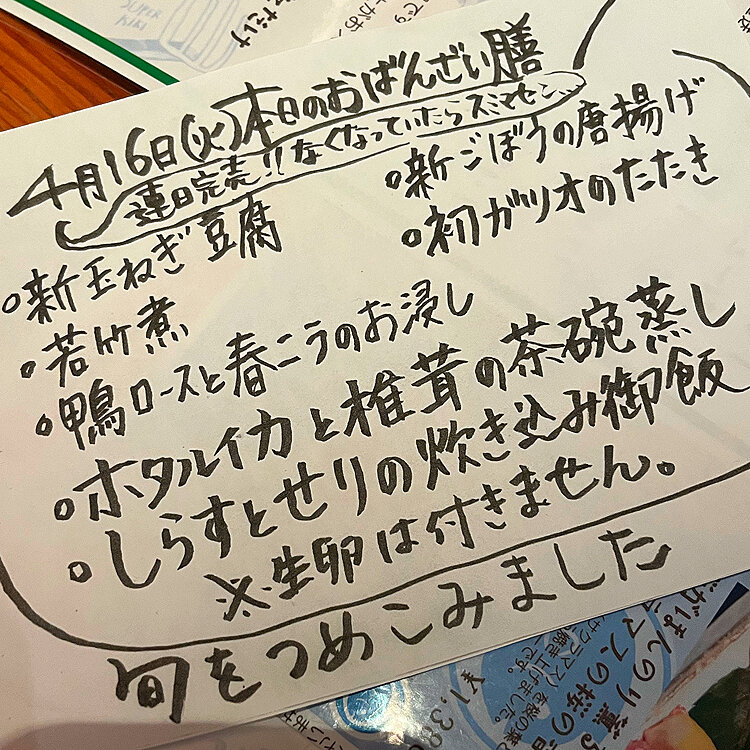 4月16日(火)本日のおばんざい膳
連日完売!!なくなっていたらスミマセン…
・新玉ねぎ豆腐
・新ごぼうの唐揚げ
・若竹煮
・初ガツオのたたき
・鴨ロースと春こうのお浸し
・ホタルイカと椎茸の茶碗蒸し
・しらすとせりの炊き込み御飯
※生卵は付きません。
旬をつめこみました
SUPER
¥1,38